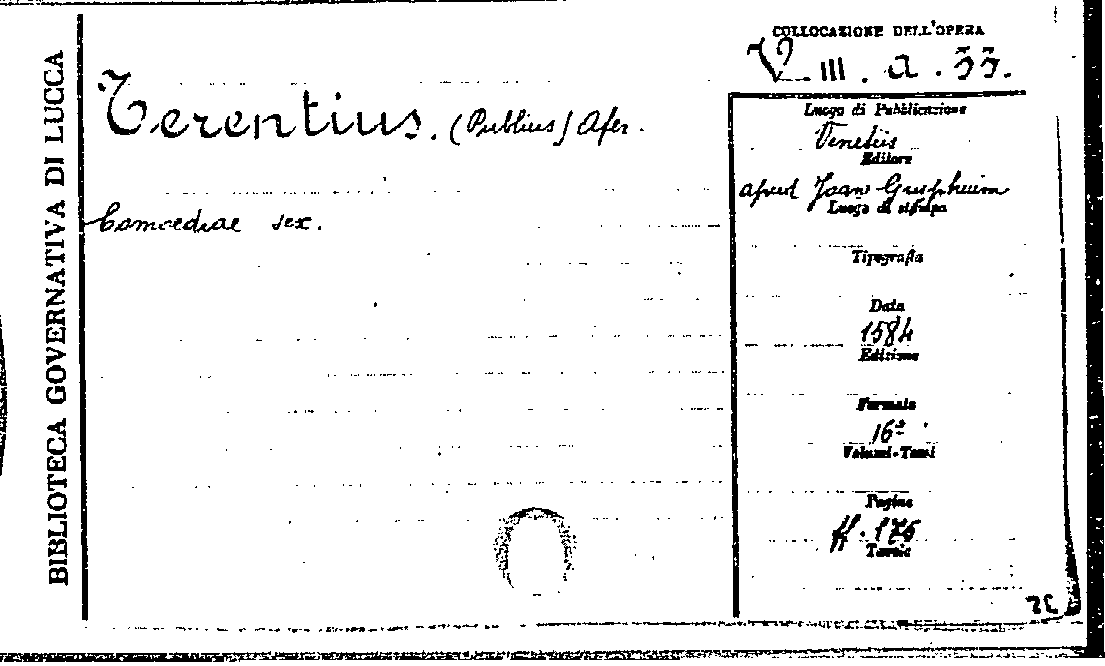 BIBLIOTECA GOVERNATIVA DI LUCCA
COLLOCAZIONE DELL'OPERA
V. III. a. 33.
Terentius. (Publius) Afer.
Comoediae sex.
Luogo di Pubblicazione
Venetiis
Editore
apud Joan Gryphium
Luogo di stampa
Tipografia
Data
1584
Edizione
Formato
16º
Volumi-Tomi
Pagine
ff. 175
Tavole